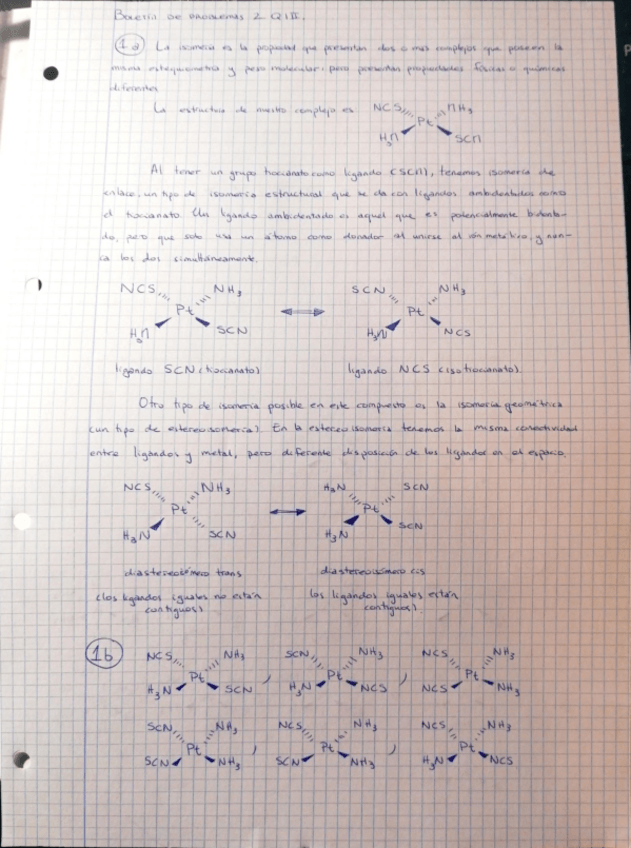 Boletín de problemas 2 QIII.
1a) La isomería es la propiedad que presentan dos o más complejos que poseen la
misma estequiometría y peso molecular, pero presentan propiedades físicas o químicas
diferentes
La estructura de nuestro complejo es
NCS NH3
Pt
H3N SCN
Al tener un grupo tiocianato como ligando (SCN), tenemos isomería de
enlace, un tipo de isomería estructural que se da con ligandos ambidentados como
el tiocianato. Un ligando ambidentado es aquel que es potencialmente bidenta-
do, pero que solo usa un átomo como donador al unirse al ión metálico, y nun-
ca los dos simultáneamente.
NCS NH3 SCN NH3
Pt Pt
H3N SCN H3N NCS
ligando SCN (tiocianato) ligando NCS (isotiocianato)
Otro tipo de isomería posible en este compuesto es la isomería geométrica
(un tipo de estereoisomería). En la estereoisomería tenemos la misma conectividad
entre ligandos y metal, pero diferente disposición de los ligandos en el espacio.
NCS NH3 H3N SCN
Pt Pt
H3N SCN H3N SCN
diastereoisómero trans diastereoisómero cis
(los ligandos iguales no están los ligandos iguales están
contiguos) contiguos).
1b NCS NH3 SCN NH3 NCS NH3
Pt , Pt , Pt
H3N SCN H3N NCS NCS NH3
SCN NH3 NCS NH3 NCS NH3
Pt , Pt , Pt
SCN NH3 SCN NH3 H3N NCS